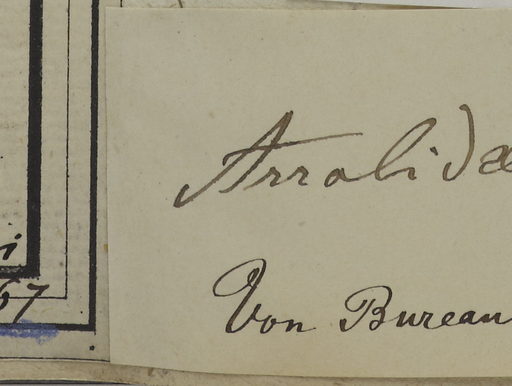 Arrabidæ
Von Bureau
i
67